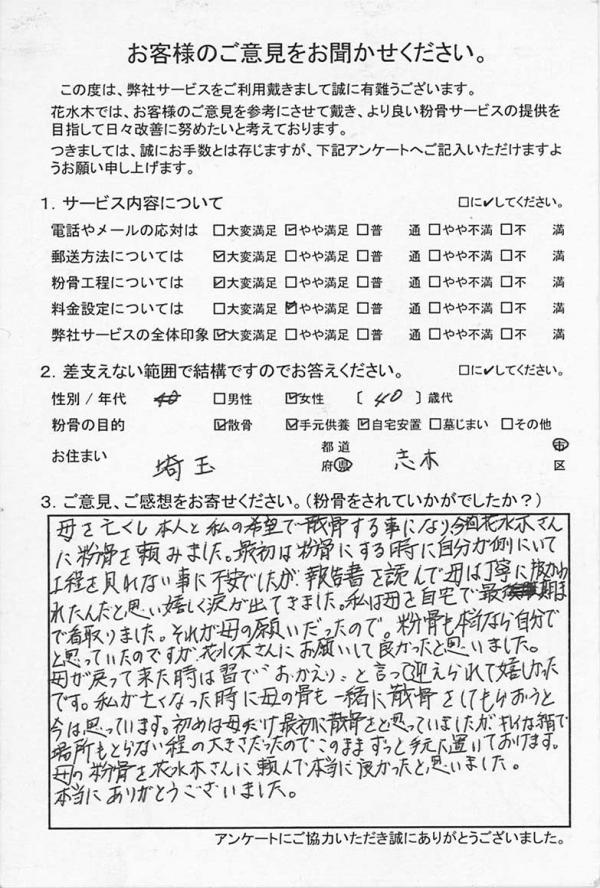 お客様のご意見をお聞かせください。
この度は、弊社サービスをご利用戴きまして誠に有難うございます。
花水木では、お客様のご意見を参考にさせて戴き、より良い粉骨サービスの提供を
目指して日々改善に努めたいと考えております。
つきましては、誠にお手数とは存じますが、下記アンケートへご記入いただけますよ
うお願い申し上げます。
1. サービス内容について □に✔してください。
電話やメールの応対は □大変満足 ☑やや満足 □普 通 □やや不満 □不 満
郵送方法については ☑大変満足 □やや満足 □普 通 □やや不満 □不 満
粉骨工程については ☑大変満足 □やや満足 □普 通 □やや不満 □不 満
料金設定については □大変満足 ☑やや満足 □普 通 □やや不満 □不 満
弊社サービスの全体印象 ☑大変満足 □やや満足 □普 通 □やや不満 □不 満
2. 差支えない範囲で結構ですのでお答えください。 □に✔してください。
性別 / 年代 □男性 ☑女性 〔 40 〕歳代
粉骨の目的 ☑散骨 ☑手元供養 ☑自宅安置 □墓じまい □その他
お住まい 埼玉 都 道 府 県 志木 市 区
3. ご意見、ご感想をお寄せください。(粉骨をされていかがでしたか?)
母を亡くし本人と私の希望で散骨する事になり、今回花水木さん
に粉骨を頼みました。最初は粉骨にする時に自分が側にいて
工程を見れない事に不安でしたが、報告書を読んで母は丁寧に扱わ
れたんだと思い嬉しく涙が出てきました。私は母を自宅で最期ま
で看取りました。それが母の願いだったので。粉骨も本当なら自分で
と思っていたのですが、花水木さんにお願いして良かったと思いました。
母が戻って来た時は習で"おかえり"と言って迎えられて嬉しかった
です。私が亡くなった時に母の骨も一緒に散骨をしてもらおうと
今は思っています。初めは母だけ最初に散骨をと思っていましたが、キレイな箱で
場所もとらない程の大きさだったのでこのままずっと手元に置いておけます。
母の粉骨を花水木さんに頼んで本当に良かったと思いました。
本当にありがとうございました。
アンケートにご協力いただき誠にありがとうございました。